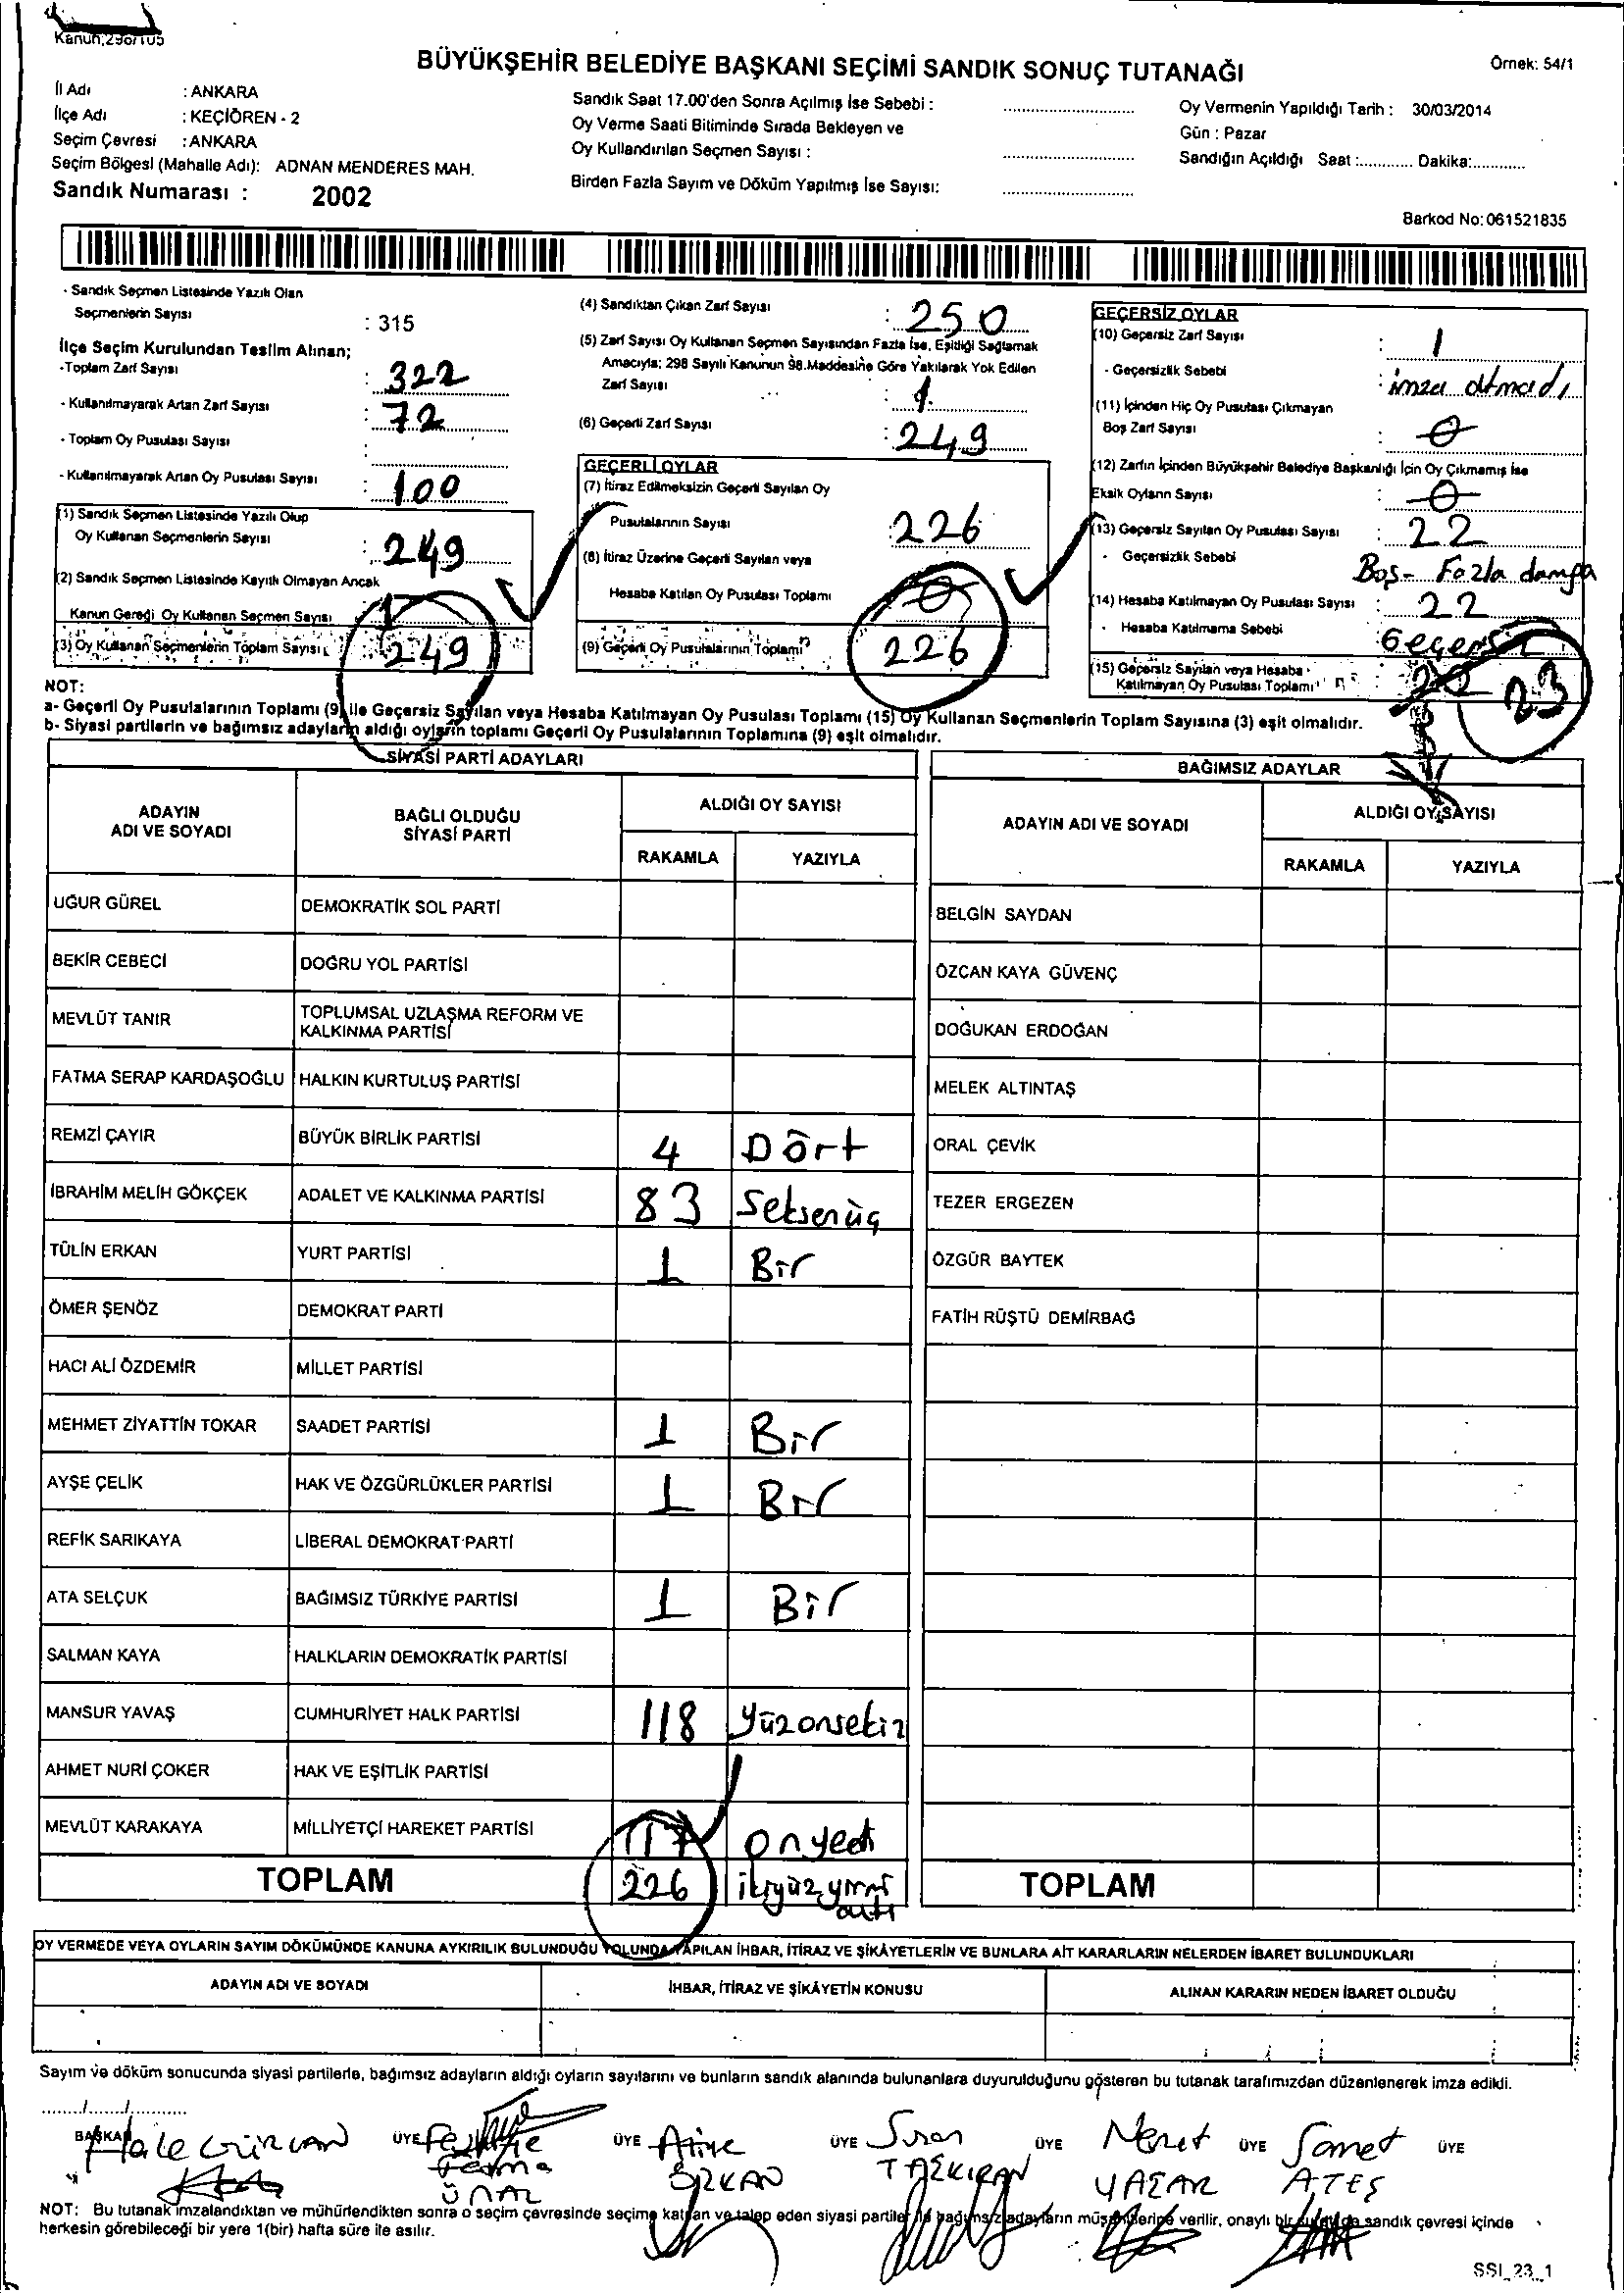 Kanun;298/105
BÜYÜKŞEHİR BELEDİYE BAŞKANI SEÇİMİ SANDIK SONUÇ TUTANAĞI
Örnek: 54/1
İl Adı : ANKARA
İlçe Adı : KEÇİÖREN - 2
Seçim Çevresi : ANKARA
Seçim Bölgesi (Mahalle Adı): ADNAN MENDERES MAH.
Sandık Numarası : 2002
Sandık Saat 17.00'den Sonra Açılmış İse Sebebi :
Oy Verme Saati Bitiminde Sırada Bekleyen ve
Oy Kullandırılan Seçmen Sayısı :
Birden Fazla Sayım ve Döküm Yapılmış İse Sayısı:
Oy Vermenin Yapıldığı Tarih : 30/03/2014
Gün : Pazar
Sandığın Açıldığı Saat :............ Dakika:............
Barkod No:061521835
- Sandık Seçmen Listesinde Yazılı Olan
Seçmenlerin Sayısı : 315
İlçe Seçim Kurulundan Teslim Alınan;
-Toplam Zarf Sayısı : 322
- Kullanılmayarak Artan Zarf Sayısı : 72
- Toplam Oy Pusulası Sayısı :
- Kullanılmayarak Artan Oy Pusulası Sayısı : 100
(1) Sandık Seçmen Listesinde Yazılı Olup
Oy Kullanan Seçmenlerin Sayısı : 249
(2) Sandık Seçmen Listesinde Kayıtlı Olmayan Ancak
Kanun Gereği Oy Kullanan Seçmen Sayısı
(3) Oy Kullanan Seçmenlerin Toplam Sayısı : 249
(4) Sandıktan Çıkan Zarf Sayısı : 250
(5) Zarf Sayısı Oy Kullanan Seçmen Sayısından Fazla İse, Eşitliği Sağlamak
Amacıyla; 298 Sayılı Kanunun 98.Maddesine Göre Yakılarak Yok Edilen
Zarf Sayısı : 1
(6) Geçerli Zarf Sayısı : 249
GEÇERLİ OYLAR
(7) İtiraz Edilmeksizin Geçerli Sayılan Oy
Pusulalarının Sayısı : 226
(8) İtiraz Üzerine Geçerli Sayılan veya
Hesaba Katılan Oy Pusulası Toplamı 0
(9) Geçerli Oy Pusulalarının Toplamı 226
GEÇERSİZ OYLAR
(10) Geçersiz Zarf Sayısı : 1
- Geçersizlik Sebebi : imza atmadı
(11) İçinden Hiç Oy Pusulası Çıkmayan
Boş Zarf Sayısı : 0
(12) Zarfın İçinden Büyükşehir Belediye Başkanlığı İçin Oy Çıkmamış İse
Eksik Oyların Sayısı : 0
(13) Geçersiz Sayılan Oy Pusulası Sayısı : 22
- Geçersizlik Sebebi Boş- Fazla damga
(14) Hesaba Katılmayan Oy Pusulası Sayısı : 22
- Hesaba Katılmama Sebebi Geçersiz
(15) Geçersiz Sayılan veya Hesaba
Katılmayan Oy Pusulası Toplamı : 23
NOT:
a- Geçerli Oy Pusulalarının Toplamı (9) ile Geçersiz Sayılan veya Hesaba Katılmayan Oy Pusulası Toplamı (15) Oy Kullanan Seçmenlerin Toplam Sayısına (3) eşit olmalıdır.
b- Siyasi partilerin ve bağımsız adayların aldığı oyların toplamı Geçerli Oy Pusulalarının Toplamına (9) eşit olmalıdır.
SİYASİ PARTİ ADAYLARI
ADAYIN ADI VE SOYADI BAĞLI OLDUĞU SİYASİ PARTİ ALDIĞI OY SAYISI
RAKAMLA YAZIYLA
UĞUR GÜREL DEMOKRATİK SOL PARTİ
BEKİR CEBECİ DOĞRU YOL PARTİSİ
MEVLÜT TANIR TOPLUMSAL UZLAŞMA REFORM VE KALKINMA PARTİSİ
FATMA SERAP KARDAŞOĞLU HALKIN KURTULUŞ PARTİSİ
REMZİ ÇAYIR BÜYÜK BİRLİK PARTİSİ 4 Dört
İBRAHİM MELİH GÖKÇEK ADALET VE KALKINMA PARTİSİ 83 Seksenüç
TÜLİN ERKAN YURT PARTİSİ 1 Bir
ÖMER ŞENÖZ DEMOKRAT PARTİ
HACI ALİ ÖZDEMİR MİLLET PARTİSİ
MEHMET ZİYATTİN TOKAR SAADET PARTİSİ 1 Bir
AYŞE ÇELİK HAK VE ÖZGÜRLÜKLER PARTİSİ 1 Bir
REFİK SARIKAYA LİBERAL DEMOKRAT PARTİ
ATA SELÇUK BAĞIMSIZ TÜRKİYE PARTİSİ 1 Bir
SALMAN KAYA HALKLARIN DEMOKRATİK PARTİSİ
MANSUR YAVAŞ CUMHURİYET HALK PARTİSİ 118 yüzonsekiz
AHMET NURİ ÇOKER HAK VE EŞİTLİK PARTİSİ
MEVLÜT KARAKAYA MİLLİYETÇİ HAREKET PARTİSİ 17 onyedi
TOPLAM 226 ikiyüzyirmi altı
BAĞIMSIZ ADAYLAR
ADAYIN ADI VE SOYADI ALDIĞI OY SAYISI
RAKAMLA YAZIYLA
BELGİN SAYDAN
ÖZCAN KAYA GÜVENÇ
DOĞUKAN ERDOĞAN
MELEK ALTINTAŞ
ORAL ÇEVİK
TEZER ERGEZEN
ÖZGÜR BAYTEK
FATİH RÜŞTÜ DEMİRBAĞ
TOPLAM
OY VERMEDE VEYA OYLARIN SAYIM DÖKÜMÜNDE KANUNA AYKIRILIK BULUNDUĞU YOLUNDA YAPILAN İHBAR, İTİRAZ VE ŞİKÂYETLERİN VE BUNLARA AİT KARARLARIN NELERDEN İBARET BULUNDUKLARI
ADAYIN ADI VE SOYADI İHBAR, İTİRAZ VE ŞİKÂYETİN KONUSU ALINAN KARARIN NEDEN İBARET OLDUĞU
Sayım ve döküm sonucunda siyasi partilerle, bağımsız adayların aldığı oyların sayılarını ve bunların sandık alanında bulunanlara duyurulduğunu gösteren bu tutanak tarafımızdan düzenlenerek imza edildi.
......../......../............
BAŞKAN Hale GÜRCAN ÜYE Fatma ÜNAL ÜYE ÖZKAN ÜYE Suzan TAŞKIRAN ÜYE YAZAR ÜYE Samet ATEŞ ÜYE
NOT: Bu tutanak imzalandıktan ve mühürlendikten sonra o seçim çevresinde seçime katılan ve talep eden siyasi partiler ile bağımsız adayların müşahitlerine verilir, onaylı bir sureti de sandık çevresi içinde
herkesin görebileceği bir yere 1(bir) hafta süre ile asılır.
SSI_23_1